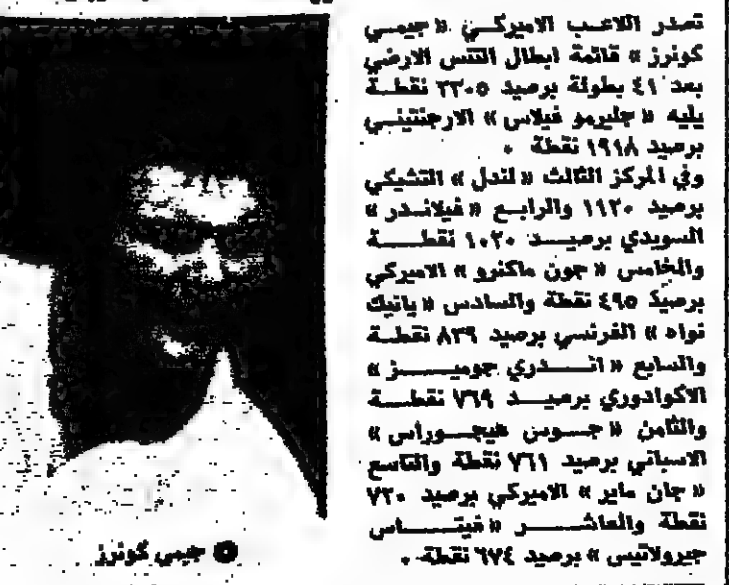 تصدر اللاعب الاميركي «جيمي
كونرز» قائمة ابطال التنس الارضي
بعد ٤١ بطولة برصيد ٢٣٠٥ نقطة
يليه «جليرمو فيلاس» الارجنتيني
برصيد ١٩١٨ نقطة .
وفي المركز الثالث «لندل» التشيكي
برصيد ١١٢٠ والرابع «فيلاندر»
السويدي برصيد ١٠٢٠ نقطة
والخامس «جون ماكنرو» الاميركي
برصيد ٤٩٥ نقطة والسادس «يانيك
نواه» الفرنسي برصيد ٨٣٩ نقطة
والسابع «اندري جوميز»
الاكوادوري برصيد ٧٦٩ نقطة
والثامن «جوس هيجوراس»
الاسباني برصيد ٧٦١ نقطة والتاسع
«جان ماير» الاميركي برصيد ٧٢٠
نقطة والعاشر «فيتاس
جيرولاتيس» برصيد ٦٧٤ نقطة .
جيمي كونرز